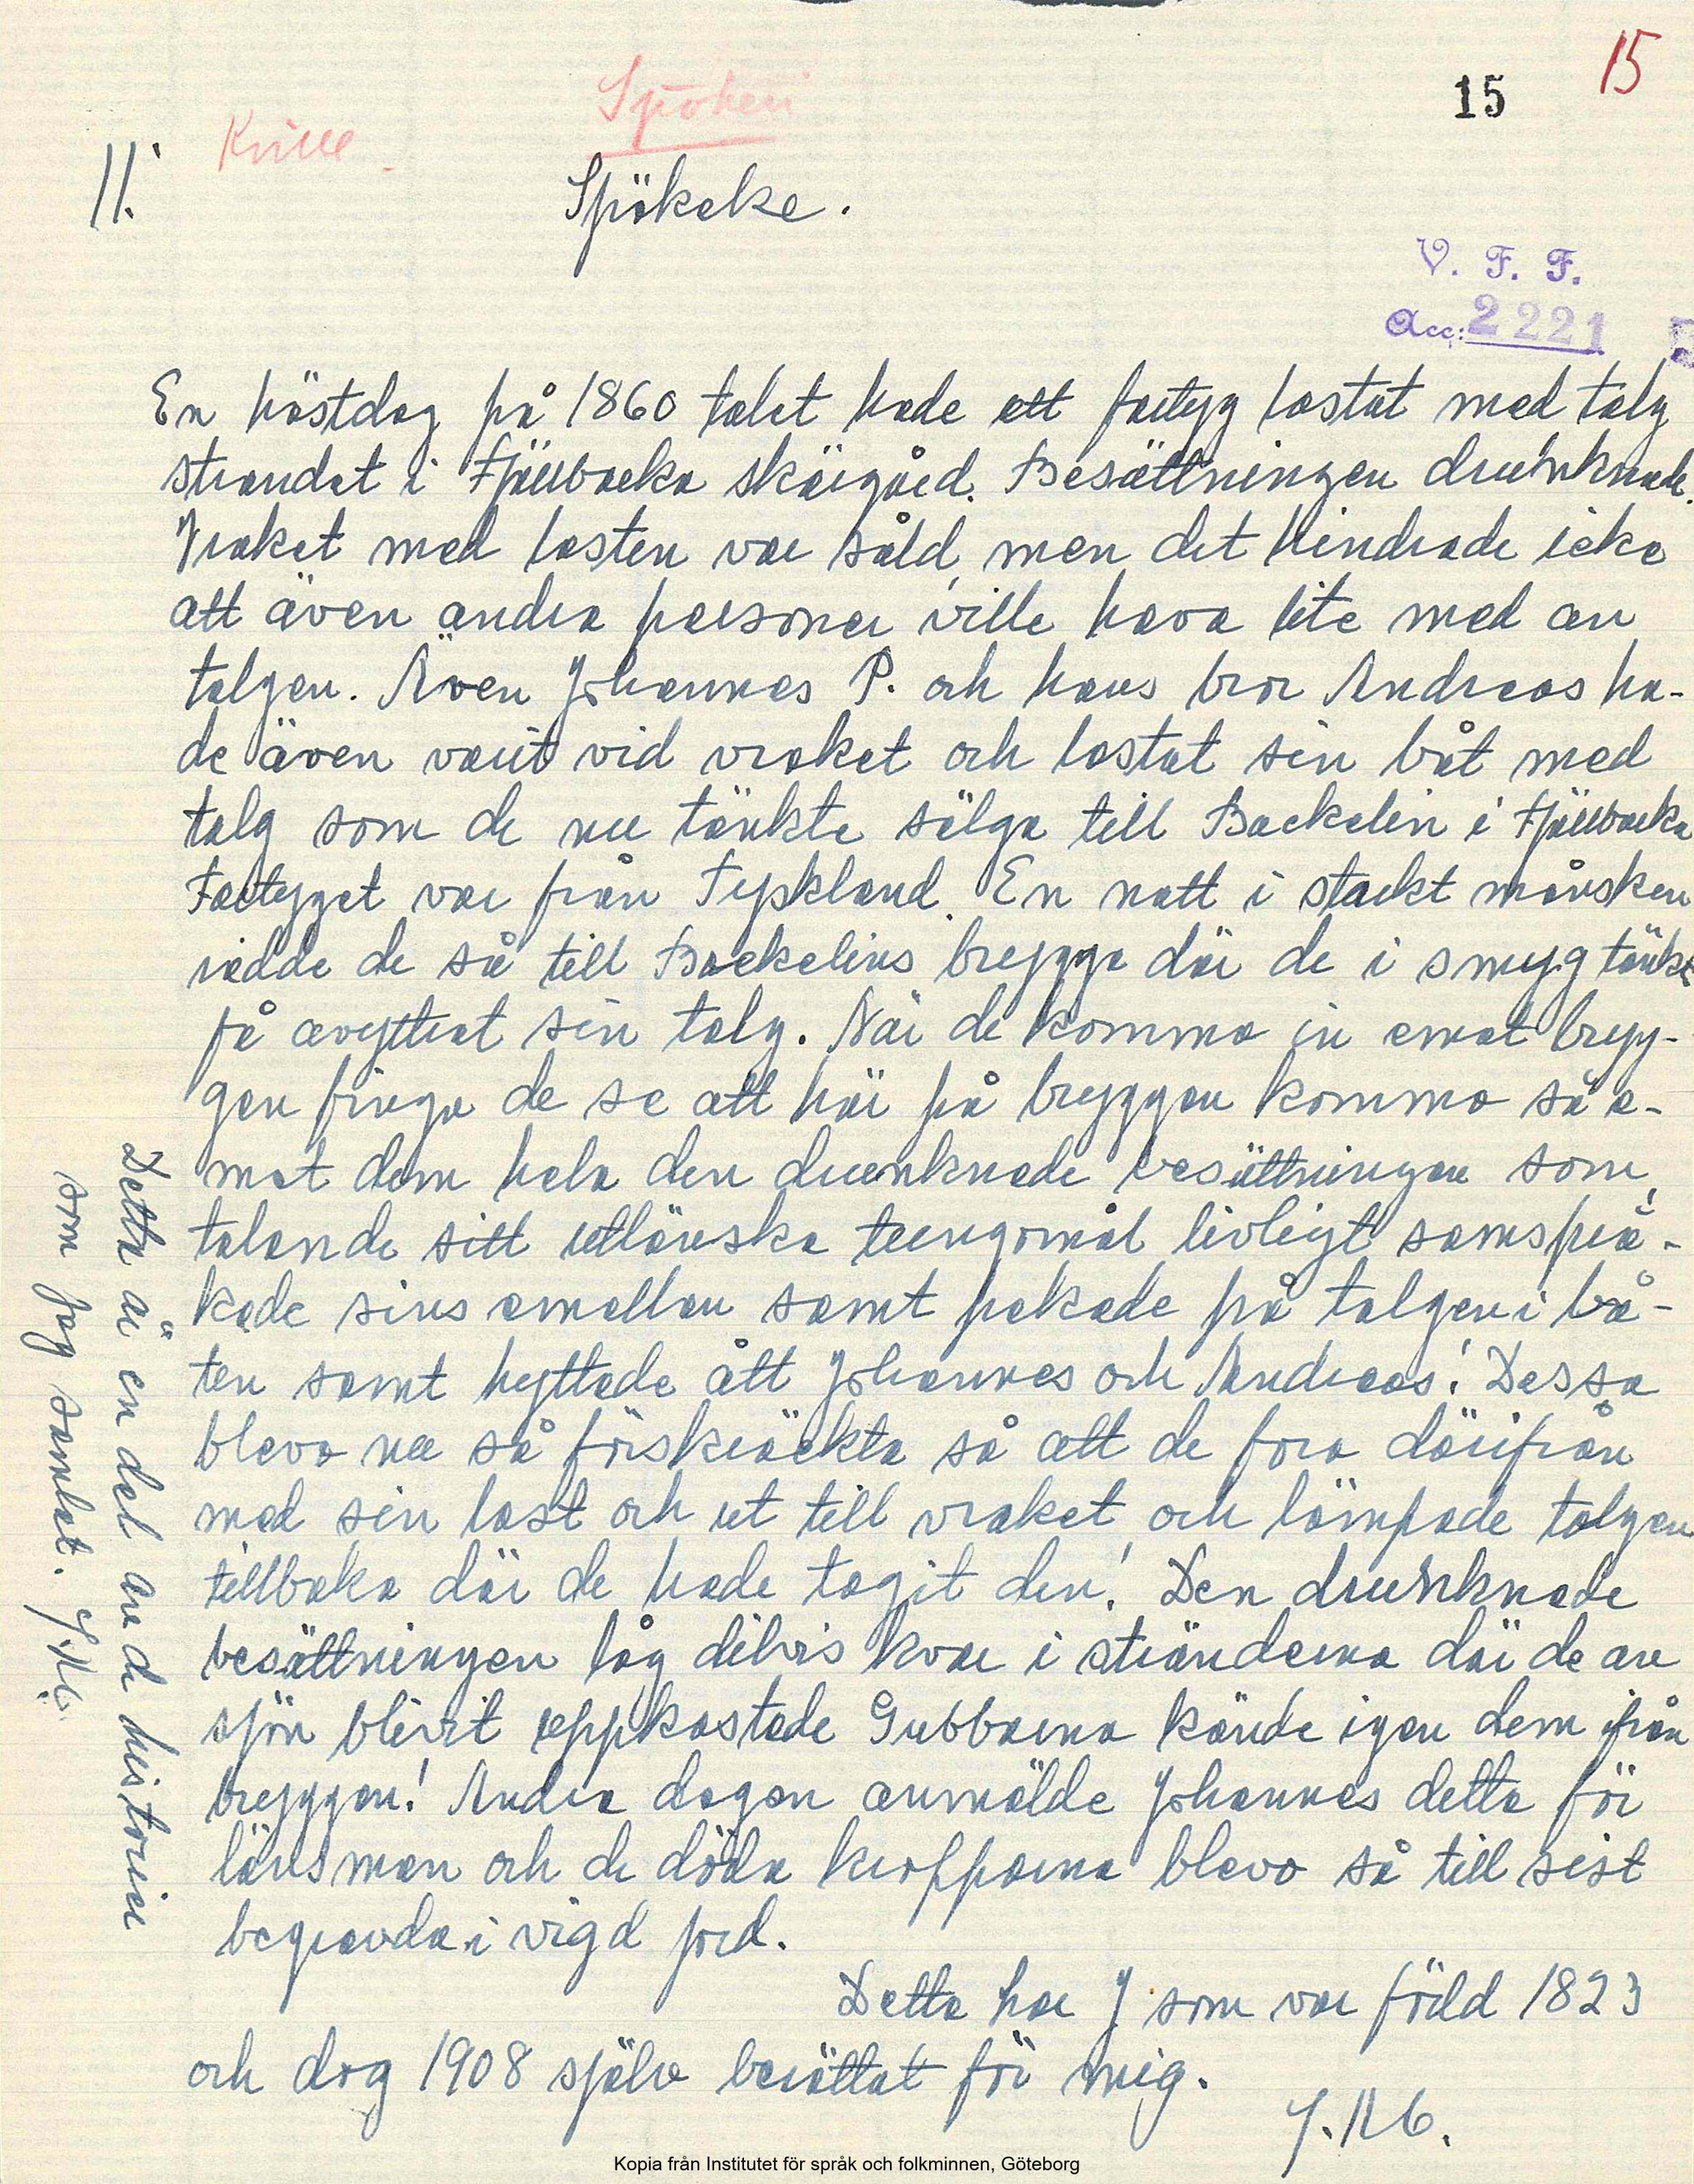 15
15
Spöken
Kville
11.
Spökeke.
V. F. F.
Acc: 2221
En höstdag på 1860 talet hade ett fartyg lastat med talg
strandat i Fjällbacka skärgård. Besättningen drunknade.
Vraket med lasten var såld, men det hindrade icke
att även andra personer ville hava lite med av
talgen. Även Johannes P. och hans bror Andreas ha-
de även varit vid vraket och lastat sin båt med
talg som de nu tänkte sälga till Backelin i Fjällbacka
Fartyget var från Tyskland. En natt i starkt månsken
rodde de så till Backelins brygga där de i smyg tänkt
få avyttrat sin talg. När de kommo in emot bryg-
gan fingo de se att här på bryggan kommo så e-
mot dem hela den drunknade besättningen som,
talande sitt utlänska tungomål livligt samsprå-
kade sins emellan samt pekade på talgen i bå-
ten samt hyttade ått Johannes och Andreas! Dessa
blevo nu så förskräckta så att de foro därifrån
med sin last och ut till vraket, och lämpade talgen
tillbaka där de hade tagit den! Den drunknade
besättningen låg dilvis kvar i stränderna där de av
sjön blivit uppkastade Gubbarna kände igen dem ifrån
bryggan! Andra dagen anmälde Johannes detta för
länsman och de döda kropparna blevo så till sist
begravda i vigd jord.
Detta har J som var född 1823
och dog 1908 själv berättat för mig.
Detta är en del av de historier
som jag samlat.
Kopia från Institutet för språk och folkminnen, Göteborg